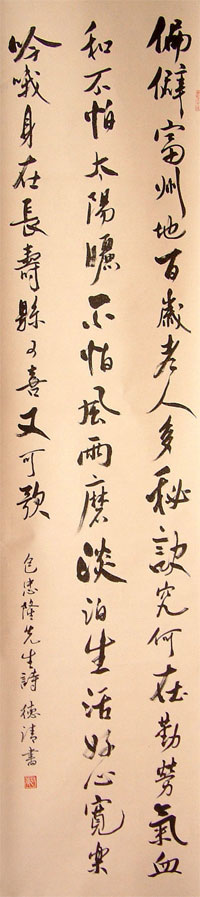 偏僻富州地百歲老人多秘訣究何在勤勞氣血
和不怕太陽曬不怕風雨磨淡泊生活好心寬樂
吟哦身在長壽縣可喜又可歌
包忠隆先生詩 德清書